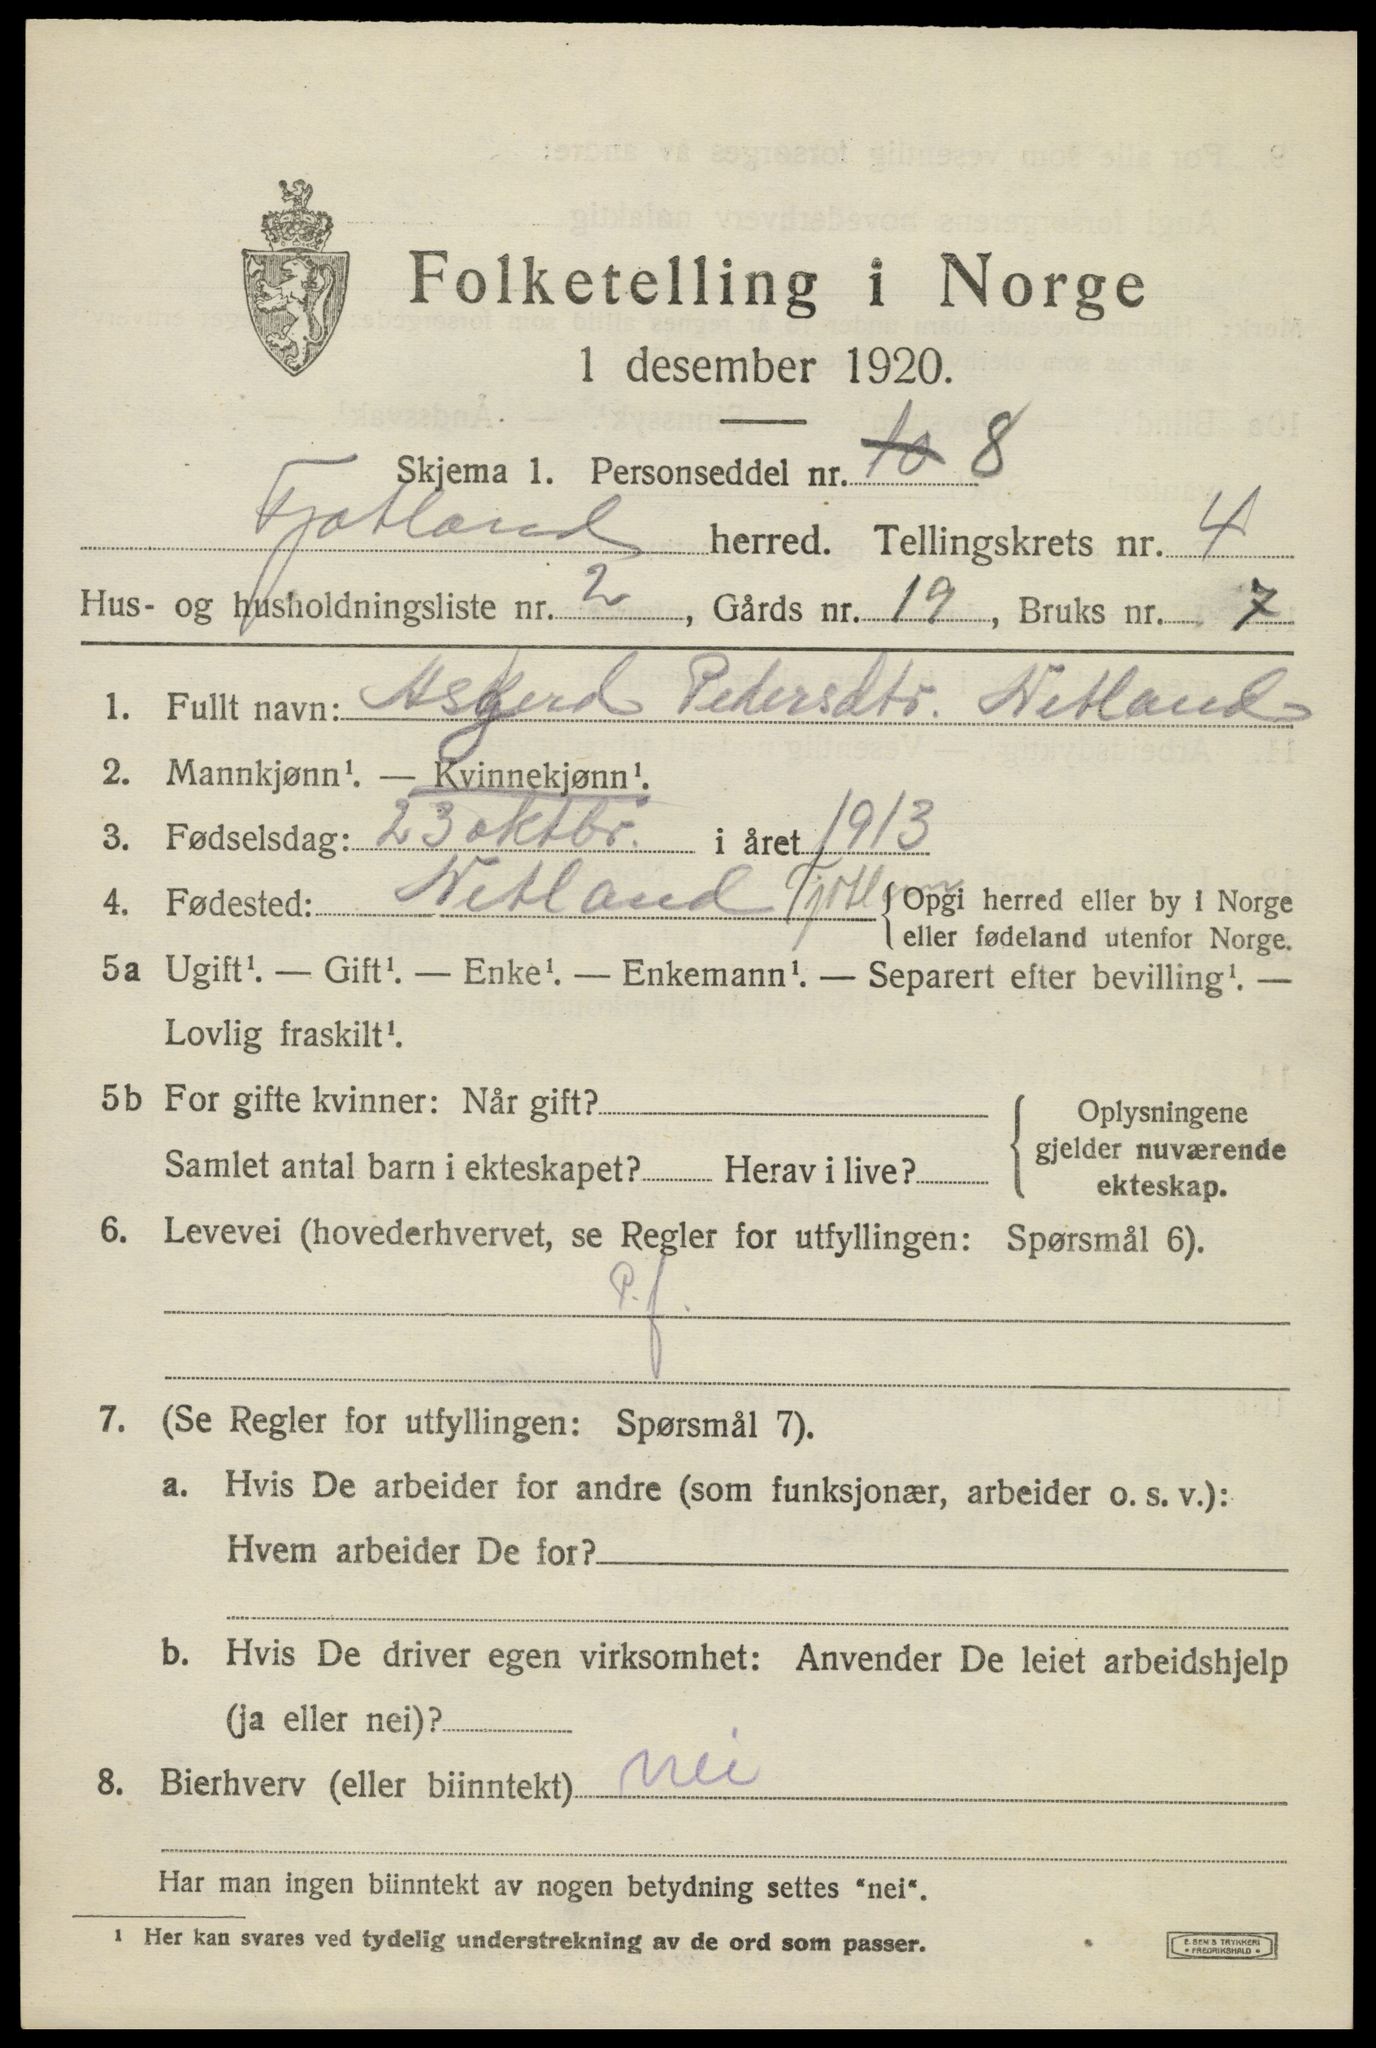 Folketelling i Norge
1 desember 1920.
Skjema 1. Personseddel nr. 10 8
Fjotland herred. Tellingskrets nr. 4
Hus- og husholdningsliste nr. 2, Gårds nr. 19, Bruks nr. 7
1. Fullt navn: Asgerd Pedersdtr. Netland
2. Mannkjønn¹. — Kvinnekjønn¹.
3. Fødselsdag: 23 oktbr. i året 1913
4. Fødested: Netland { Opgi herred eller by i Norge
eller fødeland utenfor Norge.
5a Ugift¹. — Gift¹. — Enke¹. — Enkemann¹. — Separert efter bevilling¹. —
Lovlig fraskilt¹.
5b For gifte kvinner: Når gift?
Samlet antal barn i ekteskapet? Herav i live?
{ Oplysningene
gjelder nuværende
ekteskap.
6. Levevei (hovederhvervet, se Regler for utfyllingen: Spørsmål 6).
P. f.
7. (Se Regler for utfyllingen: Spørsmål 7).
a. Hvis De arbeider for andre (som funksjonær, arbeider o. s. v.):
Hvem arbeider De for?
b. Hvis De driver egen virksomhet: Anvender De leiet arbeidshjelp
(ja eller nei)?
8. Bierhverv (eller biinntekt) nei
Har man ingen biinntekt av nogen betydning settes "nei".
¹ Her kan svares ved tydelig understrekning av de ord som passer.
TRYKKERI
• FREDRIKSHALD •